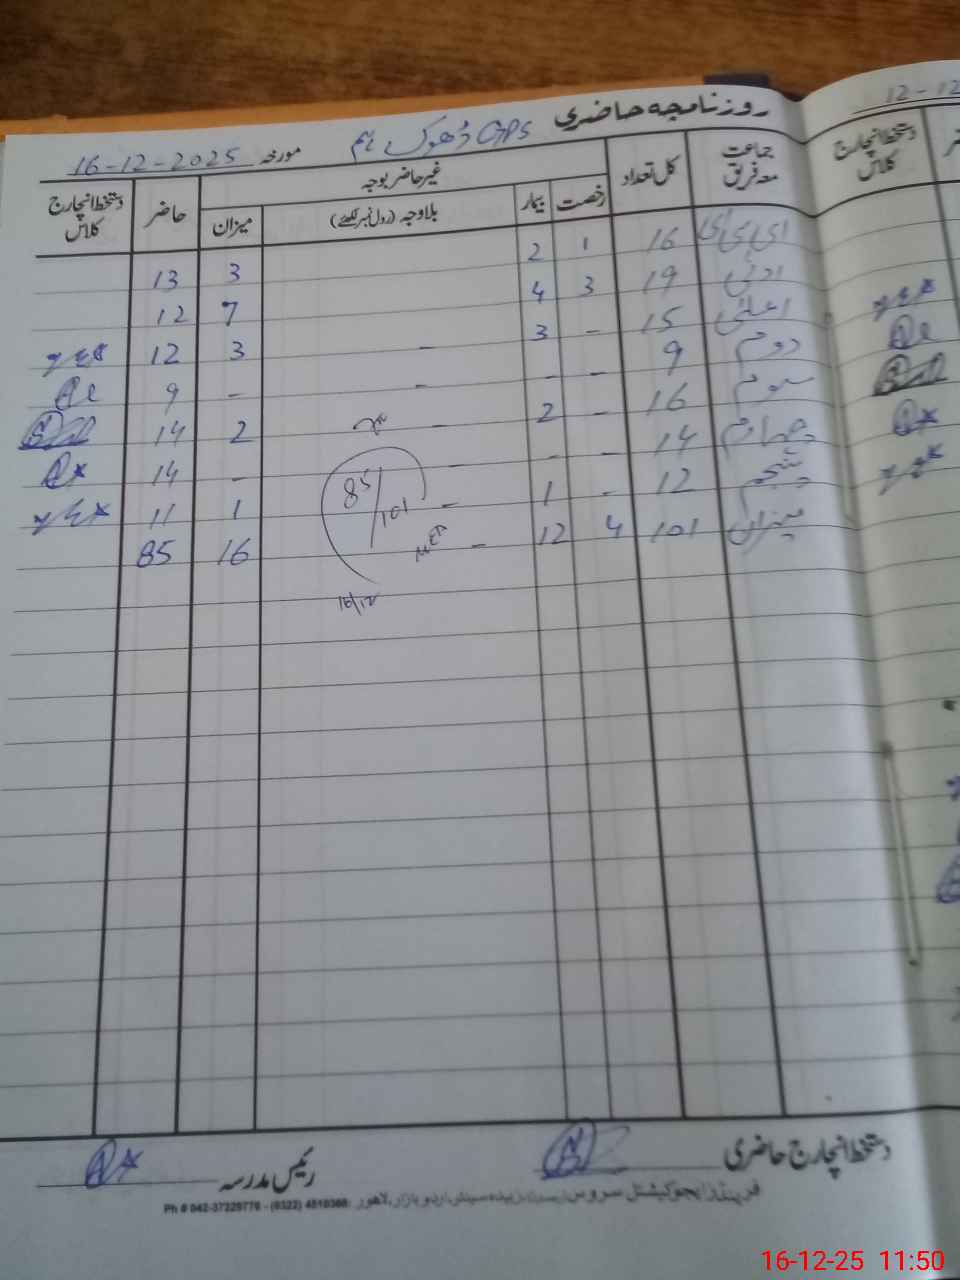 روزنامچہ حاضری GPS ڈھوک ہم مورخہ 16-12-2025
جماعت معہ فریق کل تعداد غیر حاضر بوجہ حاضر دستخط انچارج کلاس
رخصت بیمار بلاوجہ (رول نمبر لکھئے) میزان
ای سی ای 16 1 2 3 13
ادنیٰ 19 3 4 7 12
اعلیٰ 15 - 3 - 3 12
دوم 9 - - - - 9
سوم 16 - 2 - 2 14
چہارم 14 - - - - 14
پنجم 12 - 1 - 1 11
میزان 101 4 12 - 16 85
85/101
MEA
16/12
دستخط انچارج حاضری
رئیس مدرسہ
فرینڈز ایجوکیشنل سروس زبیدہ سینٹر اردو بازار لاہور
دستخط انچارج کلاس
12-12
16-12-25 11:50